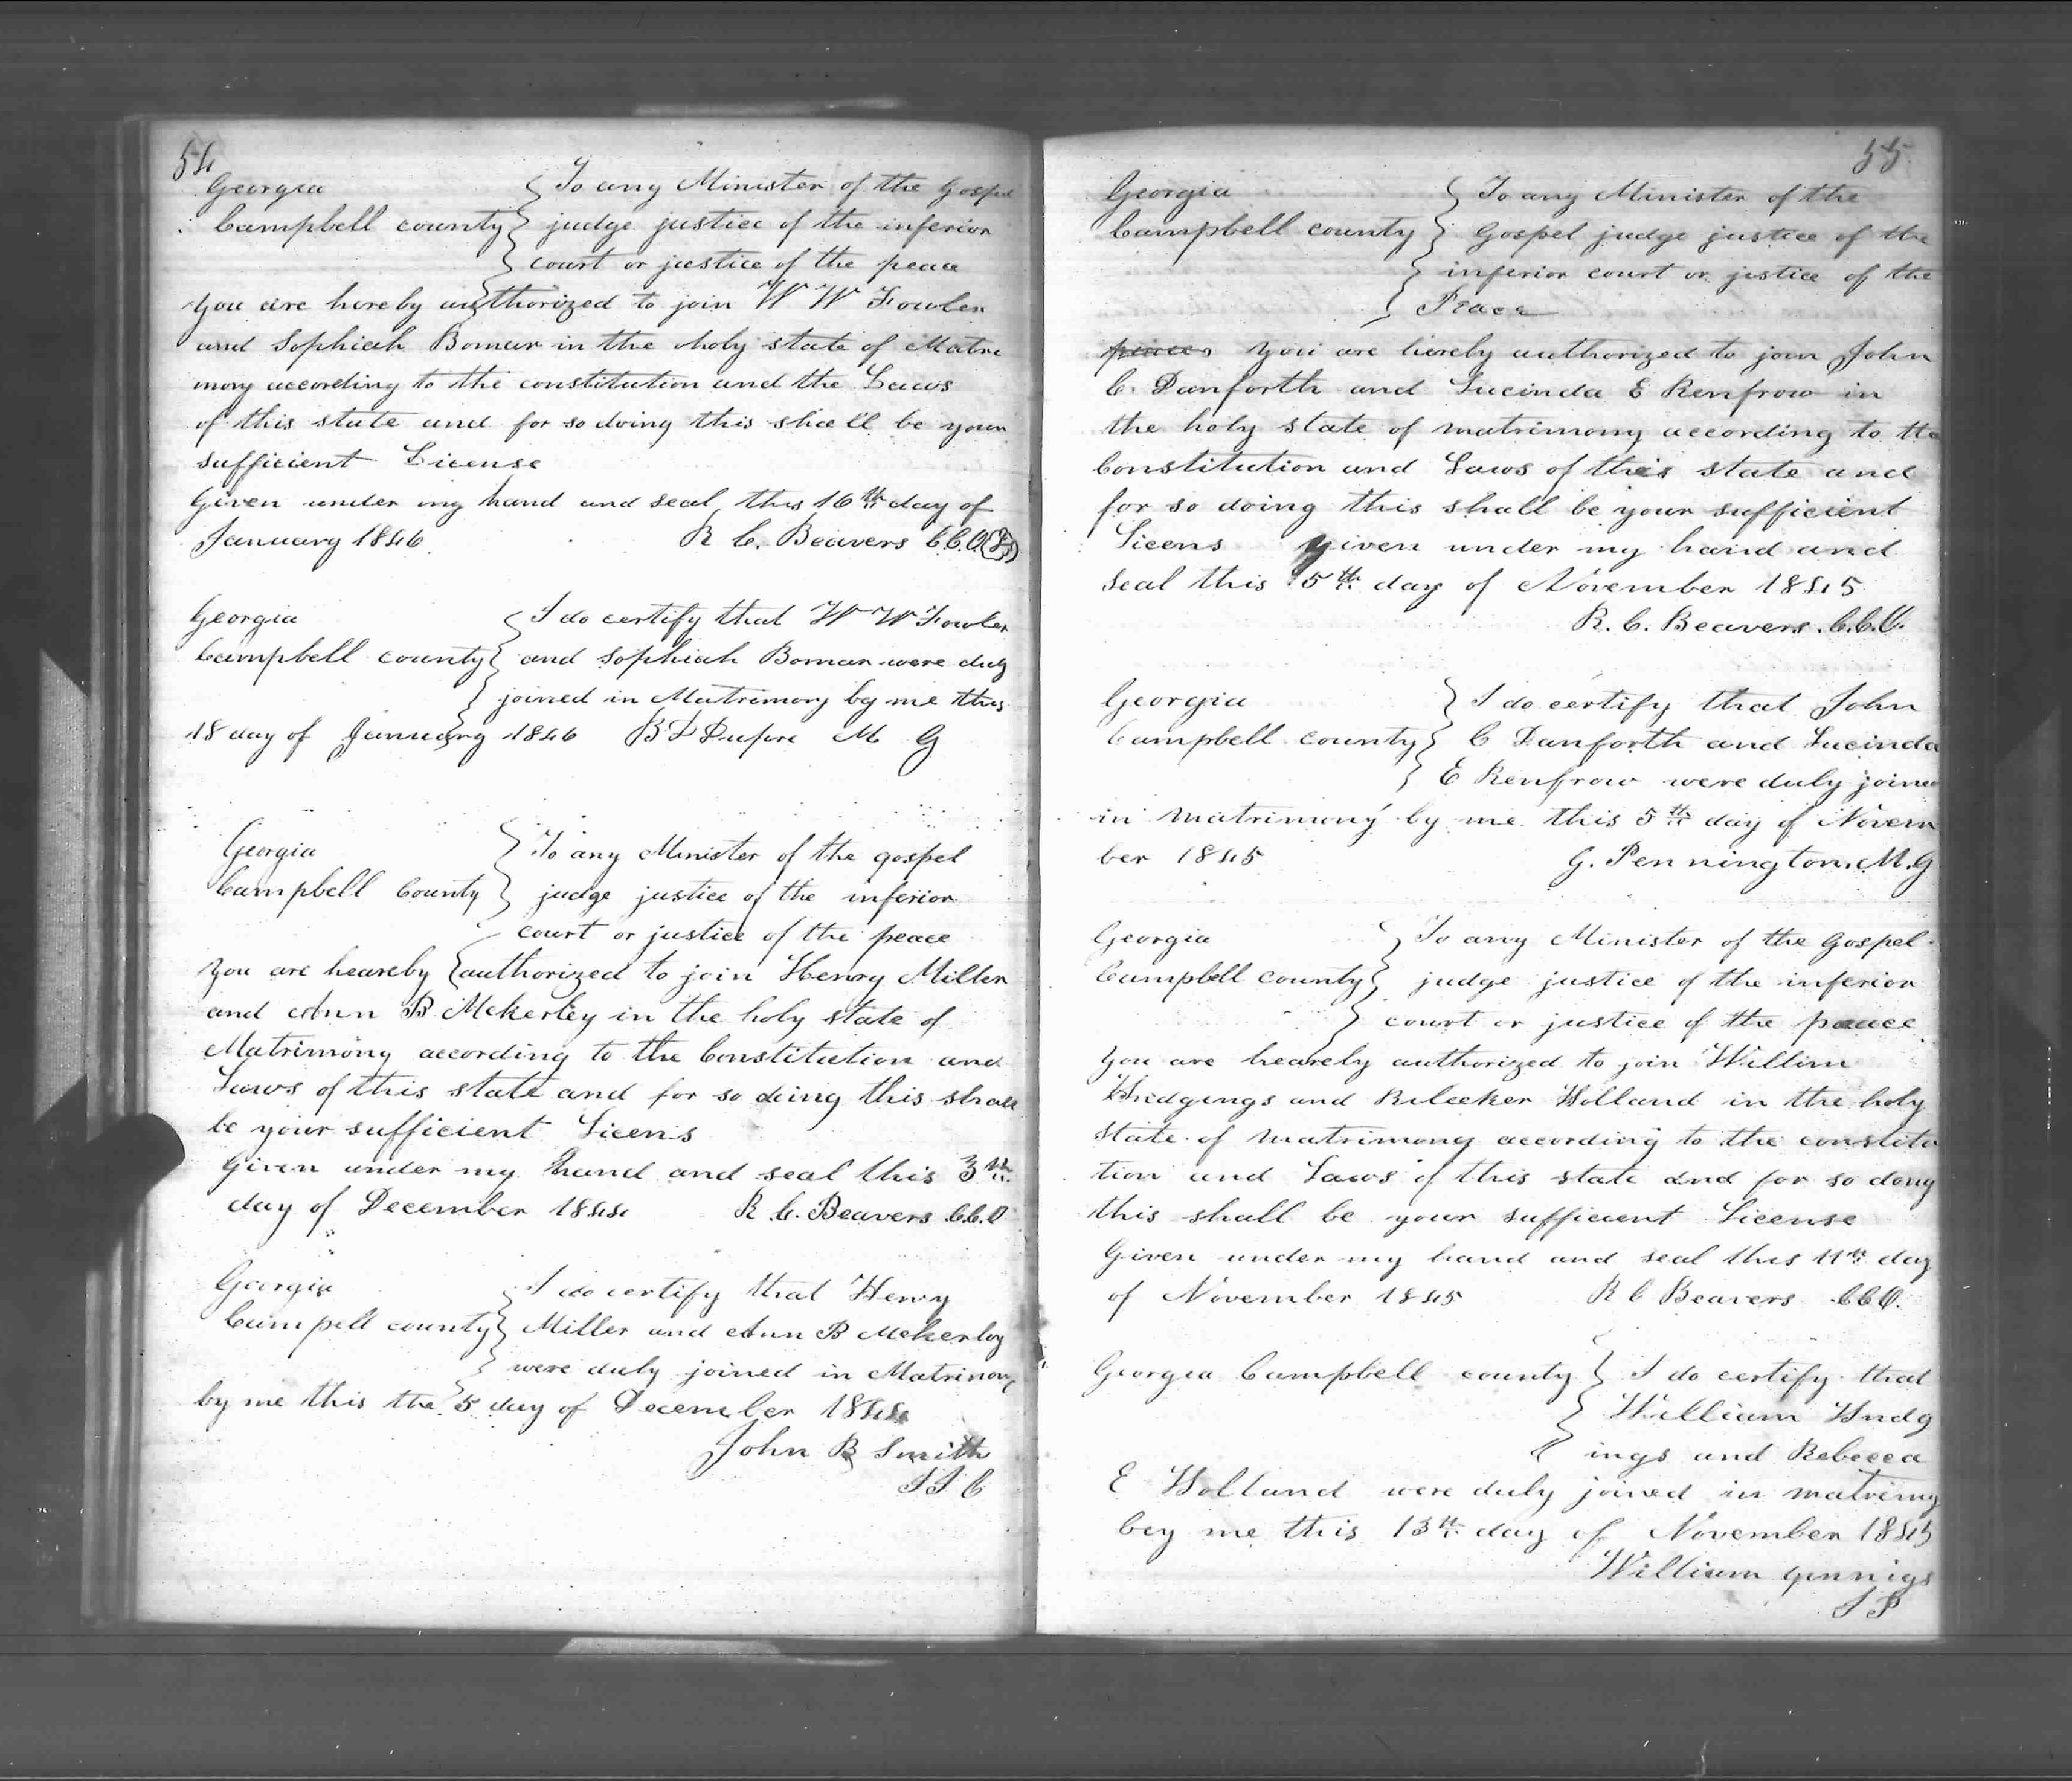 54
Georgia To any Minister of the Gospel
Campbell county judge justice of the inferior
court or justice of the peace
you are hereby authorized to join W W Fowler
and Sophiah Bomar in the holy state of Matri
mony according to the constitution and the Laws
of this state and for so doing this shall be your
sufficient License
Given under my hand and seal this 16th day of
January 1846 R C. Beavers C.C.O.
Georgia I do certify that W W Fowler
Campbell county and Sophiah Bomar were duly
joined in Matrimony by me this
18 day of January 1846 B D Dupre M G
Georgia To any Minister of the gospel
Campbell County judge justice of the inferior
court or justice of the peace
you are heareby authorized to join Henry Miller
and Ann B McKerley in the holy state of
Matrimony according to the Constitution and
Laws of this state and for so doing this shall
be your sufficient Licens
Given under my hand and seal this 3th
day of December 1844 R C. Beavers C.C.O
Georgia I do certify that Henry
Campell county Miller and Ann B McKerley
were duly joined in Matrimony
by me this the 5 day of December 1844
John B Smith
J J C
55
Georgia To any Minister of the
Campbell county Gospel judge justice of the
inferior court or jestice of the
Peace
you are hereby authorized to join John
C. Danforth and Lucinda E Renfrow in
the holy state of matrimony according to the
Constitution and Laws of this state and
for so doing this shall be your sufficient
Licens given under my hand and
seal this 5th day of November 1845
R. C. Beavers. C.C.O.
Georgia I do certify that John
Campbell county C Danforth and Lucinda
E Renfrow were duly joined
in matrimony by me this 5th day of Novem
ber 1845 G. Pennington. M.G
Georgia To any Minister of the Gospel
Campbell county judge justice of the inferior
court or justice of the peace
you are heareby authorized to join Willim
Hudgings and Rebecker Holland in the holy
state of matrimony according to the constitu
tion and Laws of this state and for so doing
this shall be your sufficient License
Given under my hand and seal this 11th day
of November 1845 R C Beavers C.C.O.
Georgia Campbell county I do certify that
William Hudg
ings and Rebecca
E Holland were duly joined in matrimy
bey me this 13th day of November 1845
William Gennigs
J P